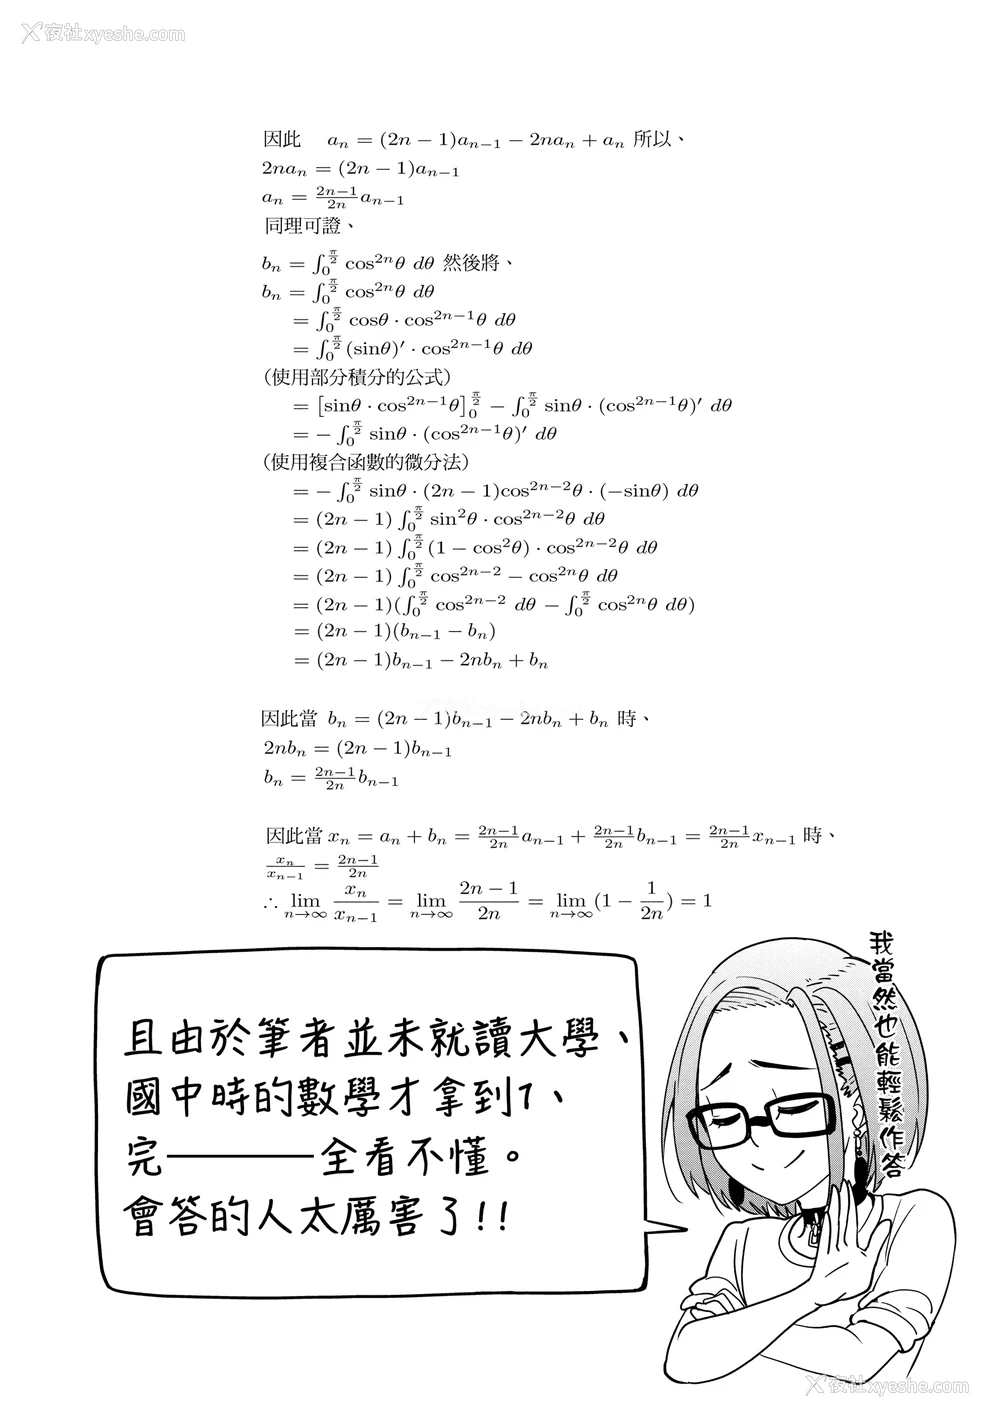 夜社xyeshe.com
因此 aₙ = (2n − 1)aₙ₋₁ − 2naₙ + aₙ 所以、
2naₙ = (2n − 1)aₙ₋₁
aₙ = \frac{2n−1}{2n}aₙ₋₁
同理可證、
bₙ = ∫_0^{\frac{π}{2}} cos²ⁿθ dθ 然後將、
bₙ = ∫_0^{\frac{π}{2}} cos²ⁿθ dθ
= ∫_0^{\frac{π}{2}} cosθ · cos²ⁿ⁻¹θ dθ
= ∫_0^{\frac{π}{2}} (sinθ)′ · cos²ⁿ⁻¹θ dθ
（使用部分積分的公式）
= [sinθ · cos²ⁿ⁻¹θ]_0^{\frac{π}{2}} − ∫_0^{\frac{π}{2}} sinθ · (cos²ⁿ⁻¹θ)′ dθ
= − ∫_0^{\frac{π}{2}} sinθ · (cos²ⁿ⁻¹θ)′ dθ
（使用複合函數的微分法）
= − ∫_0^{\frac{π}{2}} sinθ · (2n − 1)cos²ⁿ⁻²θ · (−sinθ) dθ
= (2n − 1) ∫_0^{\frac{π}{2}} sin²θ · cos²ⁿ⁻²θ dθ
= (2n − 1) ∫_0^{\frac{π}{2}} (1 − cos²θ) · cos²ⁿ⁻²θ dθ
= (2n − 1) ∫_0^{\frac{π}{2}} cos²ⁿ⁻² − cos²ⁿθ dθ
= (2n − 1)(∫_0^{\frac{π}{2}} cos²ⁿ⁻² dθ − ∫_0^{\frac{π}{2}} cos²ⁿθ dθ)
= (2n − 1)(bₙ₋₁ − bₙ)
= (2n − 1)bₙ₋₁ − 2nbₙ + bₙ
因此當 bₙ = (2n − 1)bₙ₋₁ − 2nbₙ + bₙ 時、
2nbₙ = (2n − 1)bₙ₋₁
bₙ = \frac{2n−1}{2n}bₙ₋₁
因此當 xₙ = aₙ + bₙ = \frac{2n−1}{2n}aₙ₋₁ + \frac{2n−1}{2n}bₙ₋₁ = \frac{2n−1}{2n}xₙ₋₁ 時、
\frac{xₙ}{xₙ₋₁} = \frac{2n−1}{2n}
∴ \lim_{n→∞} \frac{xₙ}{xₙ₋₁} = \lim_{n→∞} \frac{2n − 1}{2n} = \lim_{n→∞} (1 − \frac{1}{2n}) = 1
我當然也能輕鬆作答
且由於筆者並未就讀大學、
國中時的數學才拿到1、
完————全看不懂。
會答的人太厲害了!!
夜社xyeshe.com